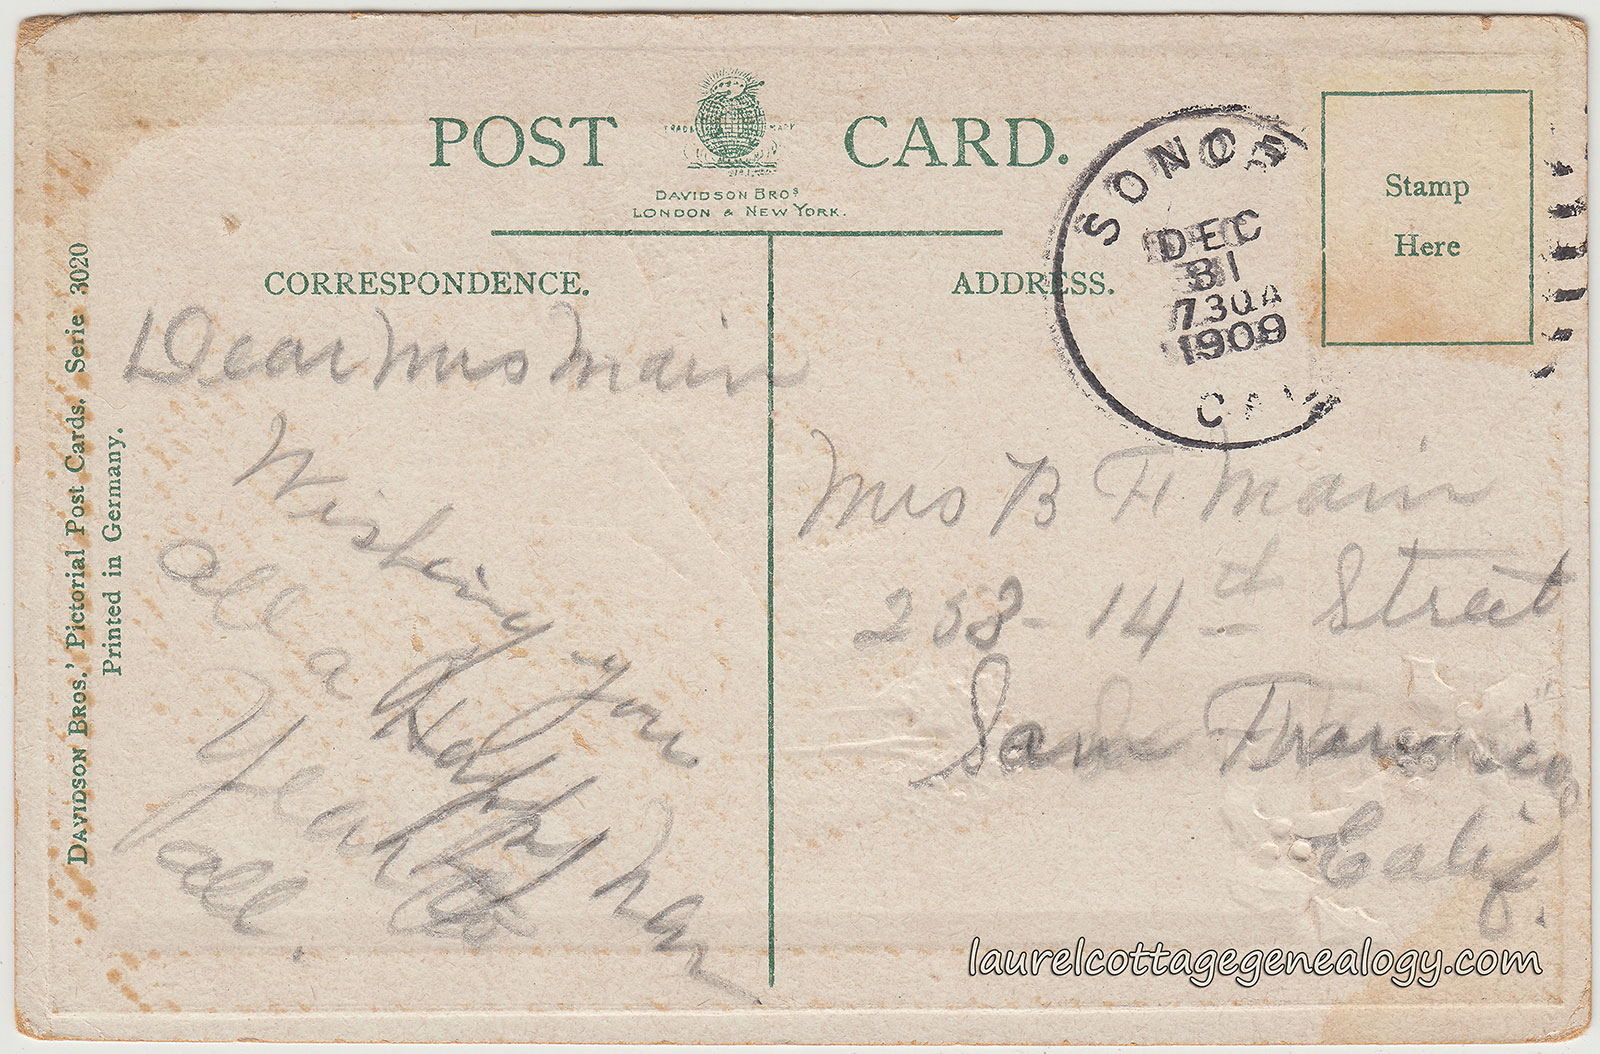 POST CARD.
TRADE MARK
DAVIDSON BROS
LONDON & NEW YORK.
CORRESPONDENCE.
ADDRESS.
Stamp
Here
SONOMA
DEC
31
730A
1909
CAL
Dear Mrs Main
Wishing you
all a Happy New
Year to
all.
Mrs B F Main
258-14th Street
San Francisco
Calif.
DAVIDSON BROS.' Pictorial Post Cards. Serie 3020
Printed in Germany.
laurelcottagegenealogy.com